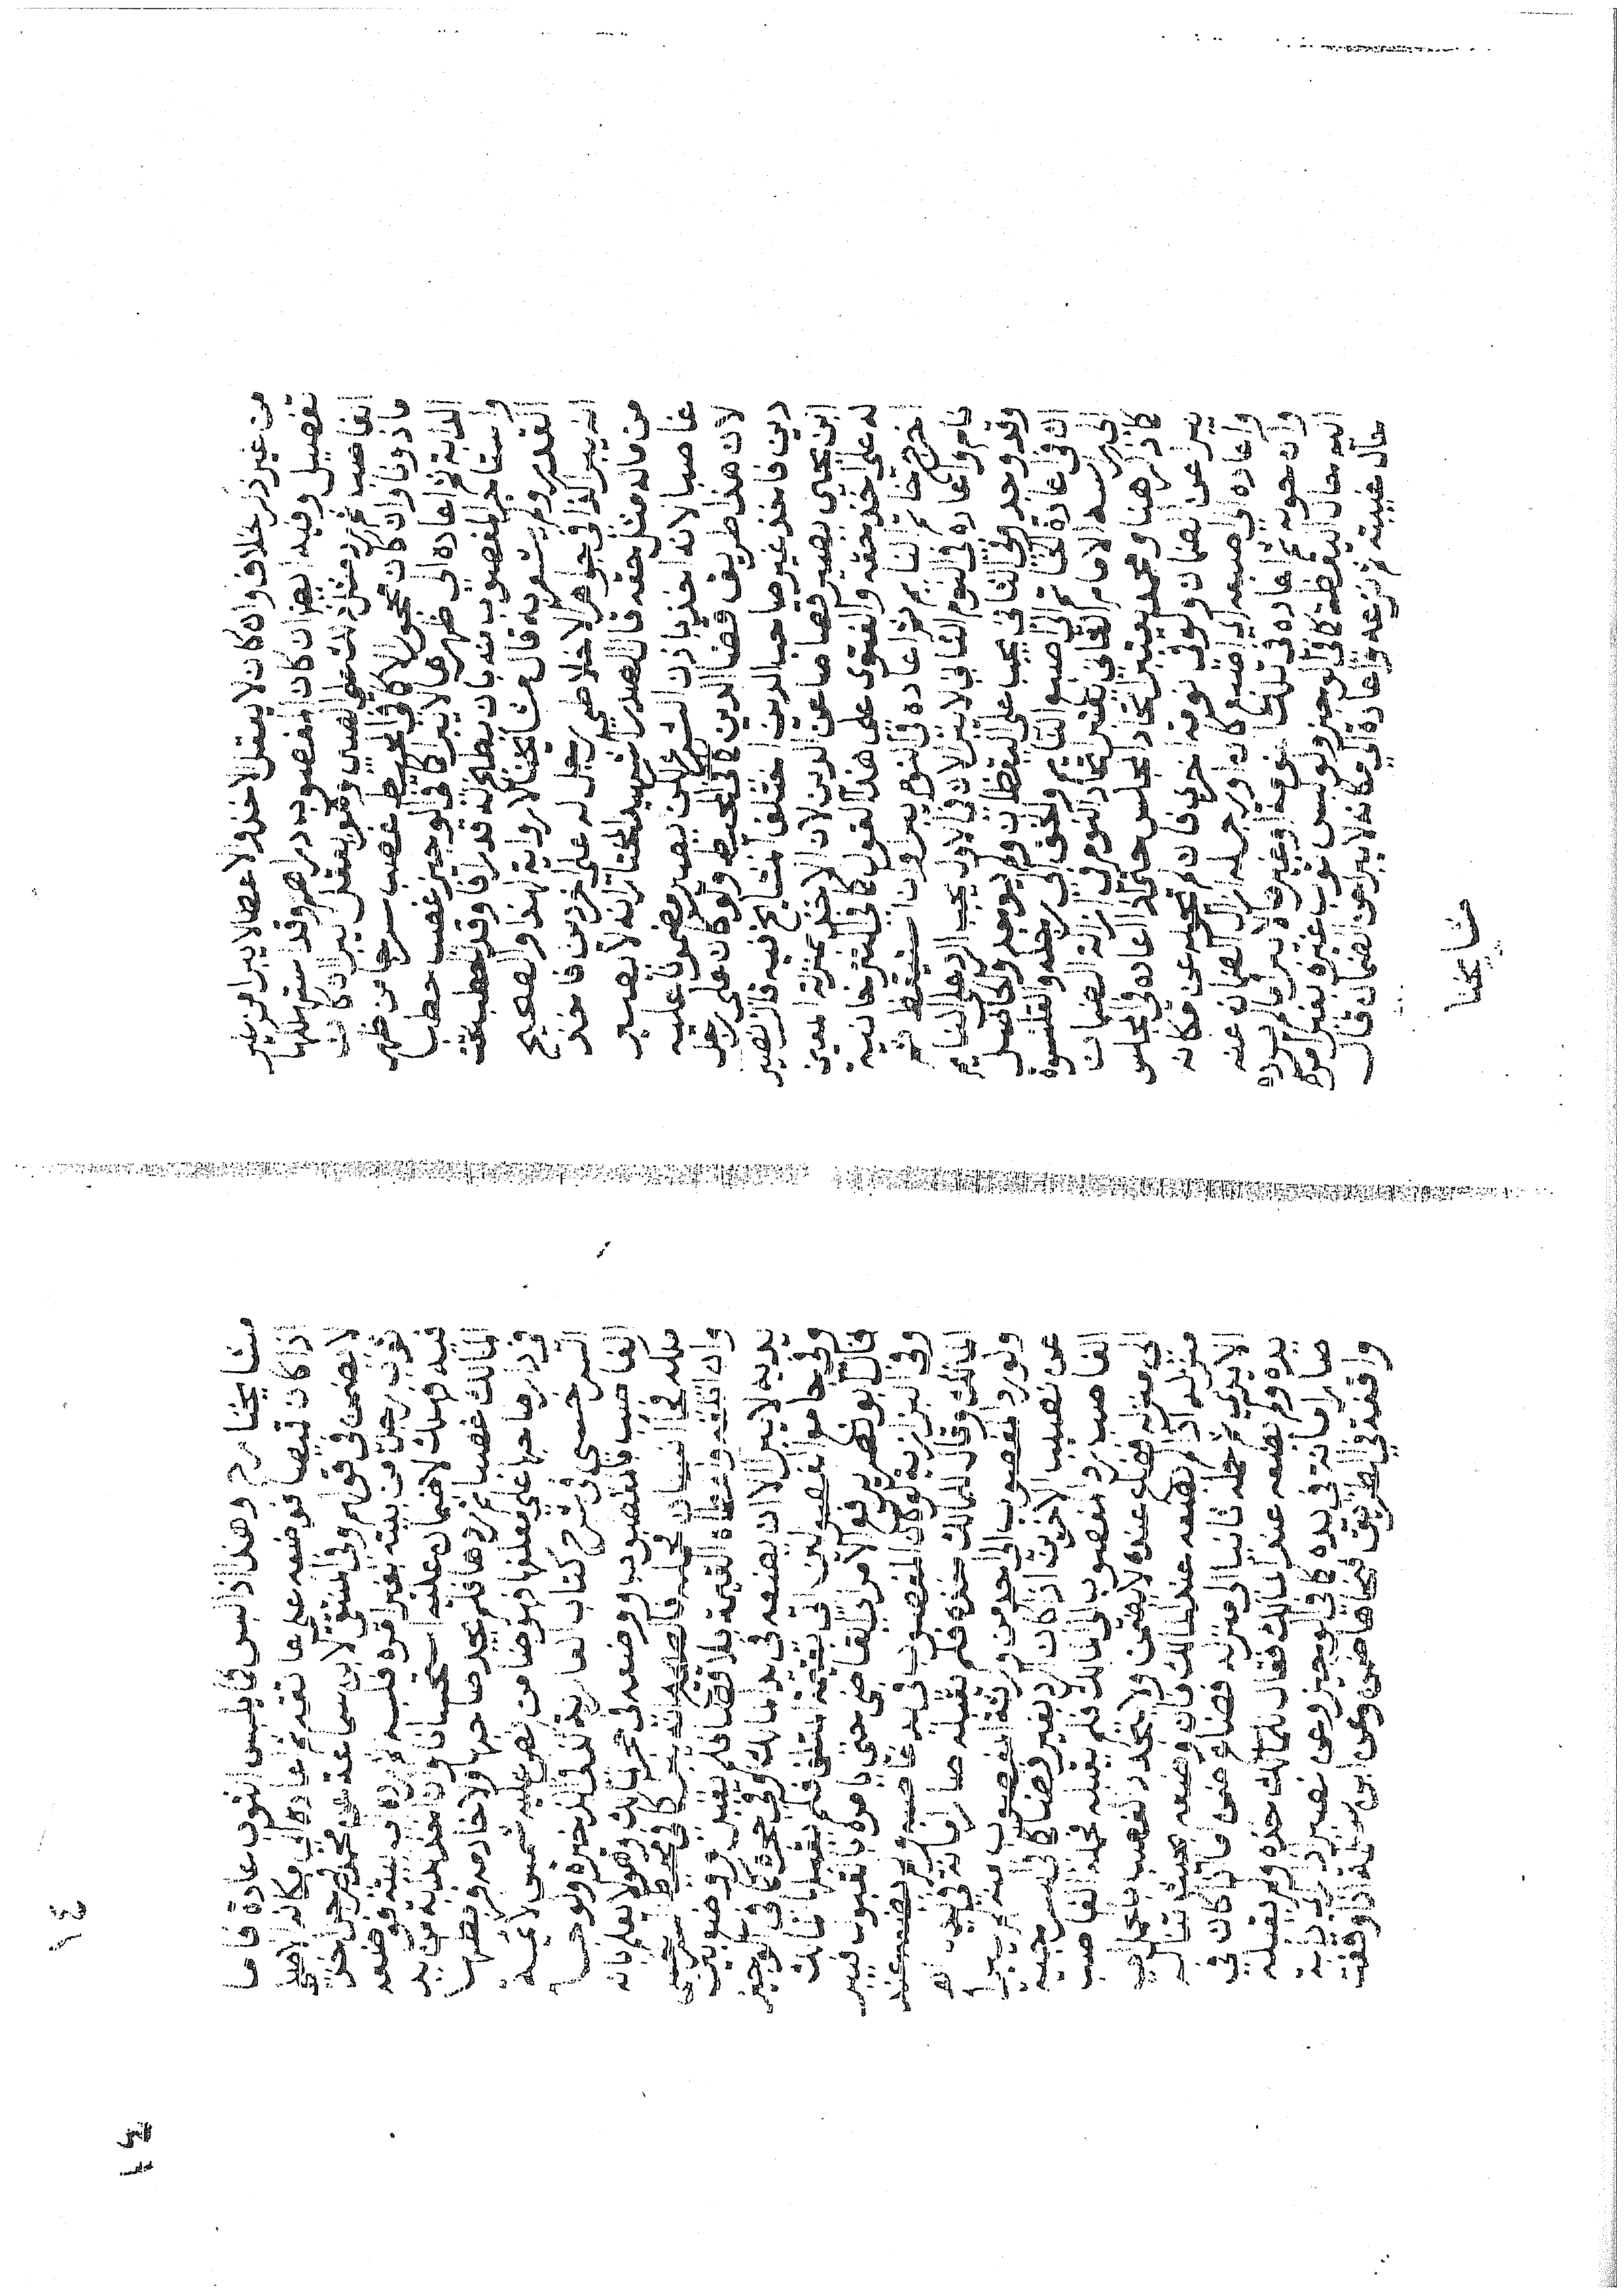 من غير ذكر خلاف وان كان لا يعقل الاخذ والاعطا لا يبرا من غير
تفصيل وفيه ايضا ان كان المغصوب دراهم وقد استهلكها
الغاصب ثم رد مثلها على الصبي وهو يعقل يبرا ان كان
ماذونا وان كان محجورا لا كما في المحيط غصب سرجا من ظهر
الدابة ثم اعاده الى ظهرها لا يبرا كما في الوجيز غصب حطبا
واستاجر المغصوب منه بان يطبخ له قدرا فاوقد الحطب تحت
القدر ولم يشعر به قال مشايخنا لا رواية لهذا والصحيح
انه يبرا كذا في جواهر الاخلاطي رجل له على اخر دين فاخذ
من ماله مثل حقه قال الصدر الشهيد المختار انه لا يصير
غاصبا لانه اخذ باذن الشرع لكن يصير مضمونا عليه
لان هذا طريق قضا الدين كما في المحيط ولو كان على رجل
دين فاخذ غير صاحب الدين اختلف المشايخ فيه قال نصير
ابن يحيى يصير قصاصا عن الدين لان الاخذ بمنزلة المعين
له على اخذ حقه والفتوى على هذا القول كما في التترخانية
اخرج خاتم النايم ثم اعاده في النوم يبرا وان استيقظ ثم
نام واعاده في النوم الثاني لا يبرا لان في الاول يجب الرد على النايم
وقد وجد وفي الثاني يجب على اليقظان ولم يوجد والحاصل
ان في اعادة الخاتم الى اصبع النايم والخف الى رجله والقلنسوة
الى راسه الامام الثاني يعتبر اتحاد النوم في ازالة الضمان
كما ذكر هنا ومحمد يعتبر اتحاد المجلس اعاده في المجلس
يبرا عن الضمان ولو في نومة اخرى فان لم تحوله عن مكانه
واعاده الى اصبعه اي اصبع كان او رجله زال الضمان عنه
وان حوله ثم اعاده في تلك النومة او غيرها لا يبرا ما لم يرده
اليه حال اليقظة كما في الوجيز ولو لبس ثوب غيره بغير امره
حال غيبته ثم نزعه واعاده الى مكانه لا يبرا عن الضمان قال
مشايخنا
مشايخنا رح وهذا اذا لبس كما يلبس الثوب عادة فاما
اذا كان قميصا فوضعه على عاتقه ثم اعاده الى مكانه
لا يضمن في قولهم وفي المنتقى ابن سماعة عن محمد رجل اخذ
ثوب رجل من بيته بغير امره فلبسه ثم رده الى بيته فوضعه
فيه فهلك لا ضمان عليه استحسانا ولو اخذ دابة من يد
المالك غصبا ثم ردها فلم يجد صاحبها ولا خادمه فربطها
في دار صاحبها على معلفها فهو ضامن نص عليه شمس الايمة
السرخسي في شرح كتاب العارية كذا في الذخيرة ولو جا
الغاصب بالمغصوب ووضعه في حجر المالك وهو لا يعلم بانه
ملكه فجا انسان فحمله فالصحيح انه يبرا كما في محيط السرخسي
وان اتلفه واعطاه القيمة بلا قضا فلم يقبل فوضع بين
يديه لا يبرا الا ان يضعه في يد المالك او في حجره كما في الوجيز
وفي جامع الفصولين اتى بقيمة المتلف فلم يقبلها المالك
قال ابو نصر يرفع الامر الى القاضي حتى يامره بالقبول فيبرا
وفي البزازية لو كان المغصوب في يد غاصبه ولم يضعه عند
المالك وقال للمالك خذه فلم يقبله صار امانة في يده
ولو رد المغصوب الى احد من ورثة المغصوب منه لم يبرا
عن نصيب الاخرين اذا كان الرد بغير قضا كما في السرجية
الغاصب رد المغصوب الى المالك فلم يقبله فحمله الغاصب
الى منزله فضاع عنده لا يضمن ولا يتجدد الغصب بالحمل الى
منزله اذا لم يضعه عند المالك فان وضعه بحيث تناله
الايدي ثم حمله ثانيا الى منزله فضاع ضمن اما اذا كان في
يده ولم يضعه عند المالك فقال للمالك خذه ولم يقبله
صار امانة في يده كما في الوجيز وعن
واقفة في الطريق فنحاها ضمن وعن ابن